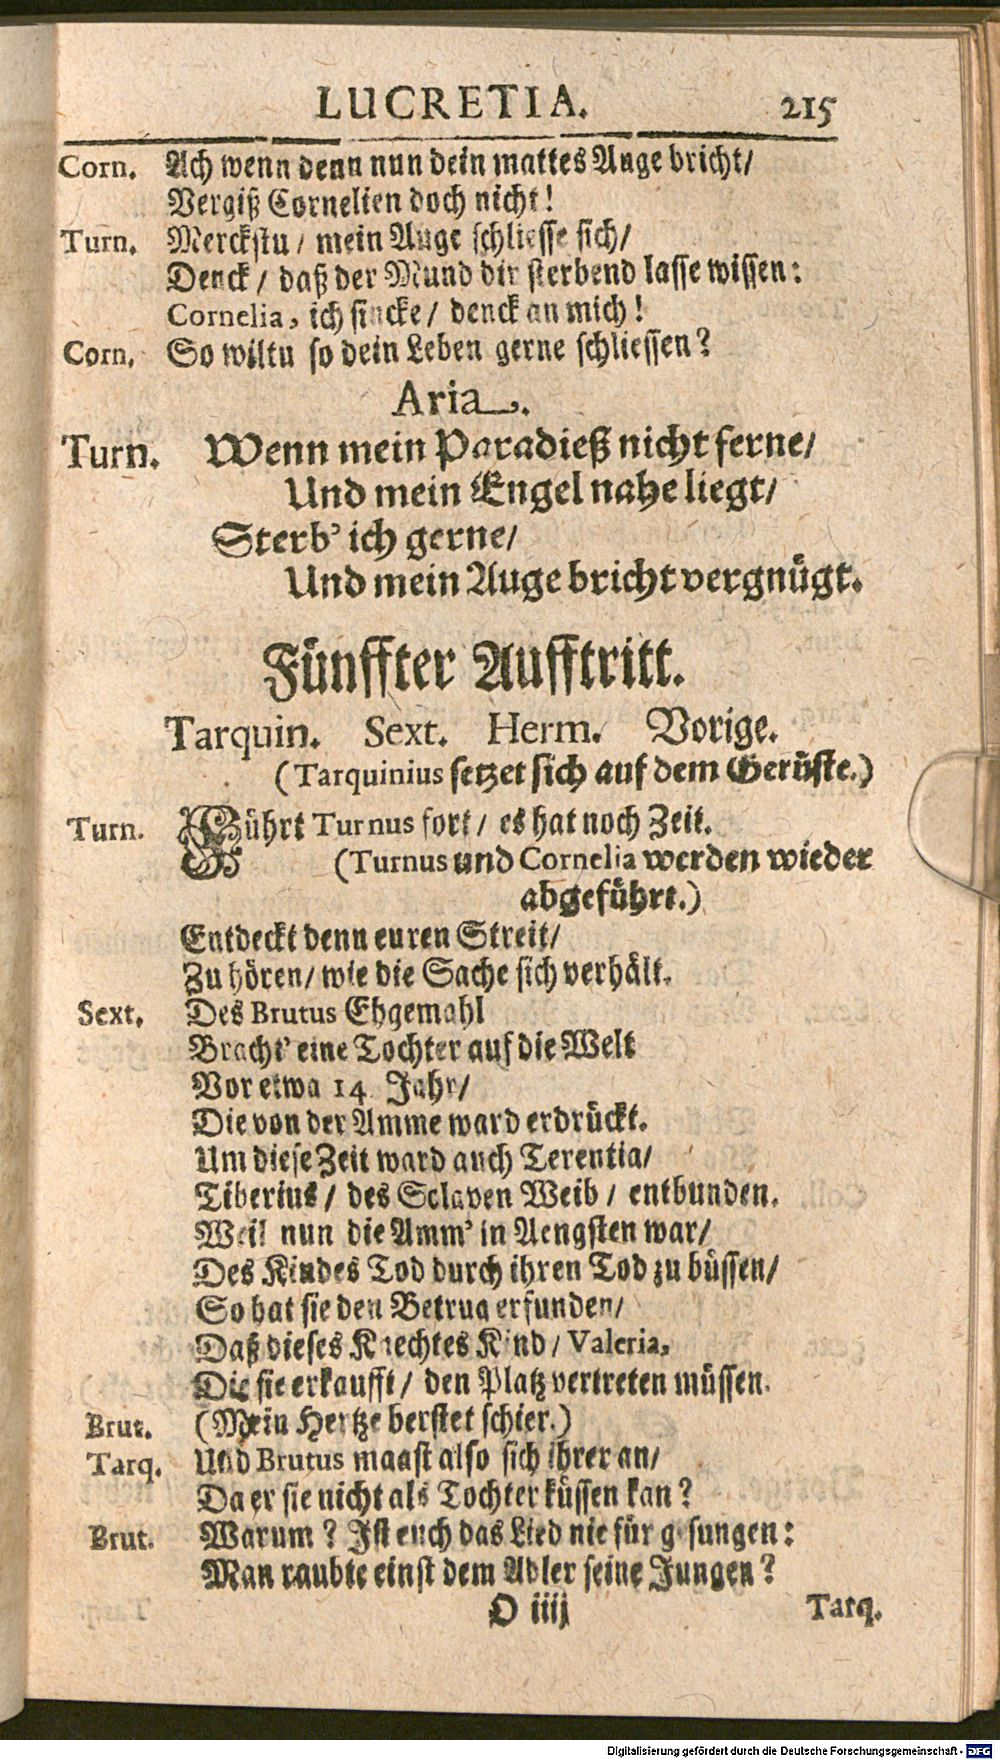 LUCRETIA. 215
Corn. Ach wenn denn nun dein mattes Auge bricht/
Vergiß Cornelien doch nicht!
Turn. Merckstu/ mein Auge schliesse sich/
Denck/ daß der Mund dir sterbend lasse wissen:
Cornelia, ich sincke/ denck an mich!
Corn. So wiltu so dein Leben gerne schliessen?
Aria.
Turn. Wenn mein Paradieß nicht ferne/
Und mein Engel nahe liegt/
Sterb' ich gerne/
Und mein Auge bricht vergnügt.
Fünffter Aufftritt.
Tarquin. Sext. Herm. Vorige.
(Tarquinius setzet sich auf dem Gerüste.)
Turn. Führt Turnus fort/ es hat noch Zeit.
(Turnus und Cornelia werden wieder
abgeführt.)
Entdeckt denn euren Streit/
Zu hören/ wie die Sache sich verhält.
Sext. Des Brutus Ehgemahl
Bracht' eine Tochter auf die Welt
Vor etwa 14. Jahr/
Die von der Amme ward erdrückt.
Um diese Zeit ward auch Terentia/
Tiberius/ des Sclaven Weib/ entbunden.
Weil nun die Amm' in Aengsten war/
Des Kindes Tod durch ihren Tod zu büssen/
So hat sie den Betrug erfunden/
Daß dieses Knechtes Kind/ Valeria,
Die sie erkaufft/ den Platz vertreten müssen.
Brut. (Mein Hertze berstet schier.)
Tarq. Und Brutus maast also sich ihrer an/
Da er sie nicht als Tochter küssen kan?
Brut. Warum? Ist euch das Lied nie für gesungen:
Man raubte einst dem Adler seine Jungen?
O iiij Tarq.
Digitalisierung gefördert durch die Deutsche Forschungsgemeinschaft - DFG